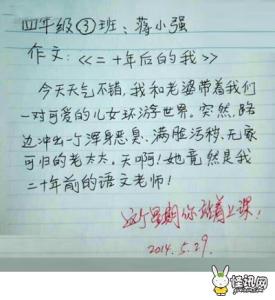 四年级③班：蒋小强
作文：《二十年后的我》
今天天气不错，我和老婆带着我们
一对可爱的儿女环游世界。突然，路
边冲出一个浑身恶臭、满脸污秽、无家
可归的老太太。天啊！她竟然是我
二十年前的语文老师！
这个星期你站着上课！
2014.5.29.
怪讯网